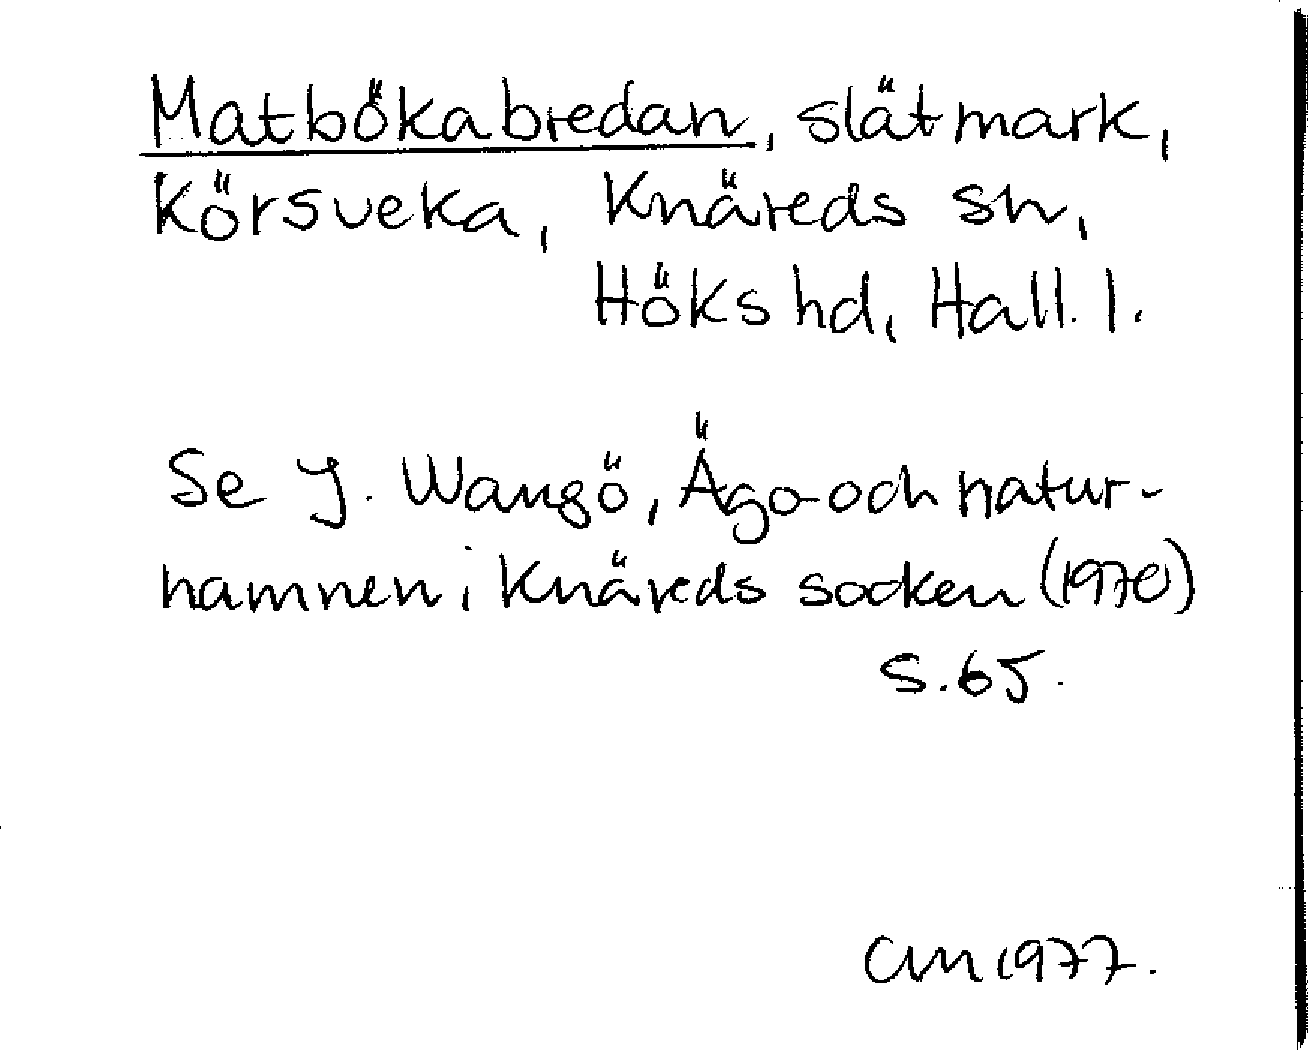 Matbökabredan, slåtmark,
Körsveka, Knäreds sn,
Höks hd, Hall. l.
Se J. Wangö, Ägo- och natur-
namnen i Knäreds socken (1970)
s. 65.
CM 1977.